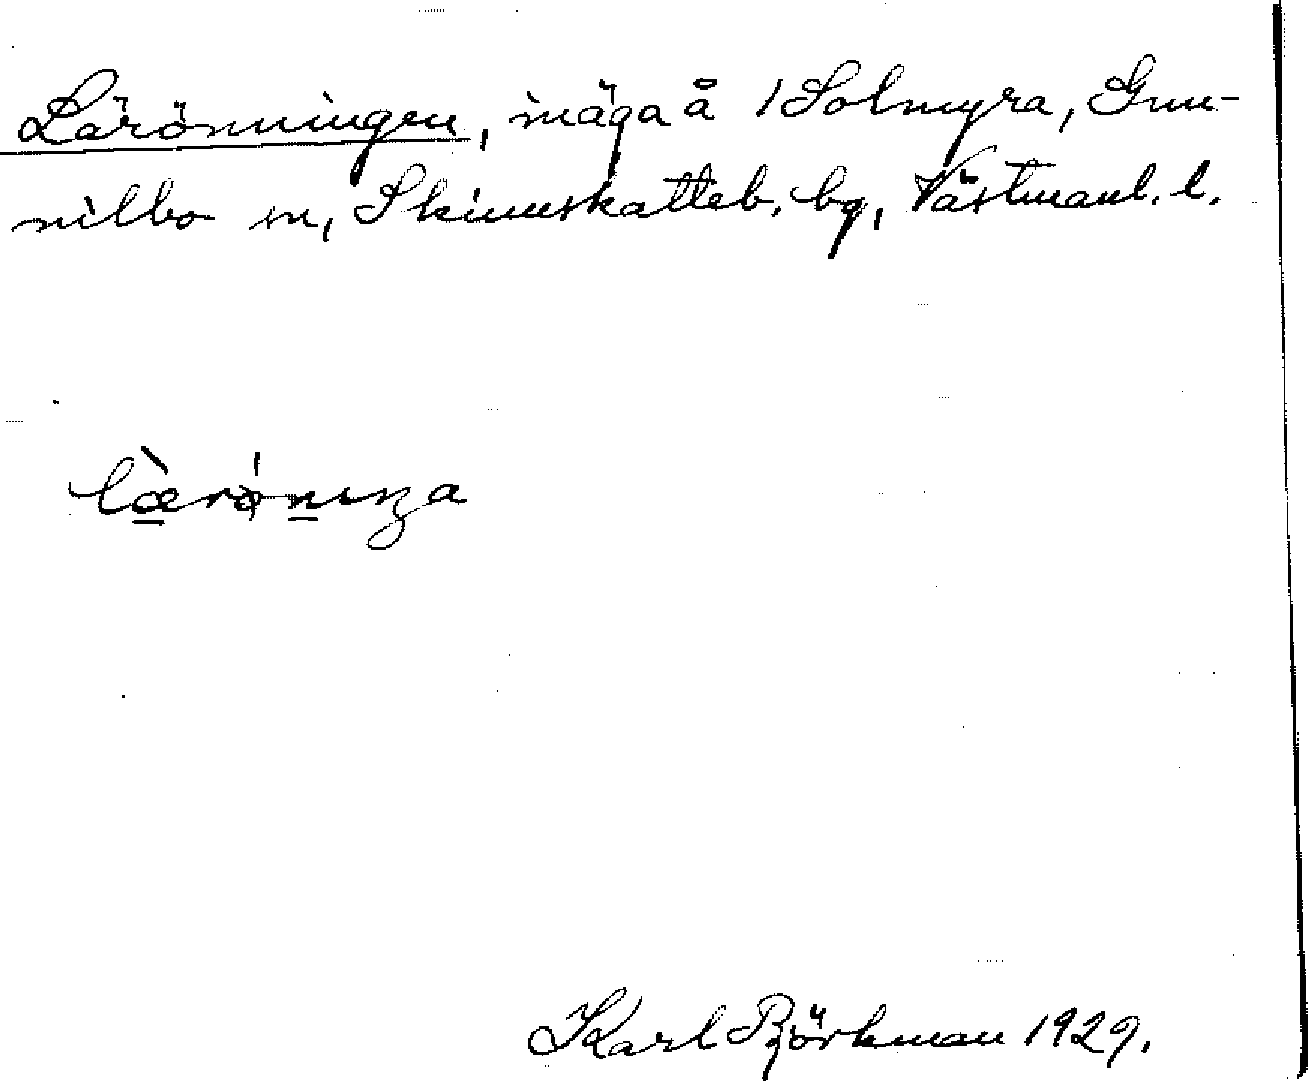 Lärönningen, inäga å 1 Solmyra, Gun-
nilbo sn, Skinnskatteb. bg, Västmanl. l.
læ̀rǿnıŋa
Karl Björkman 1929.